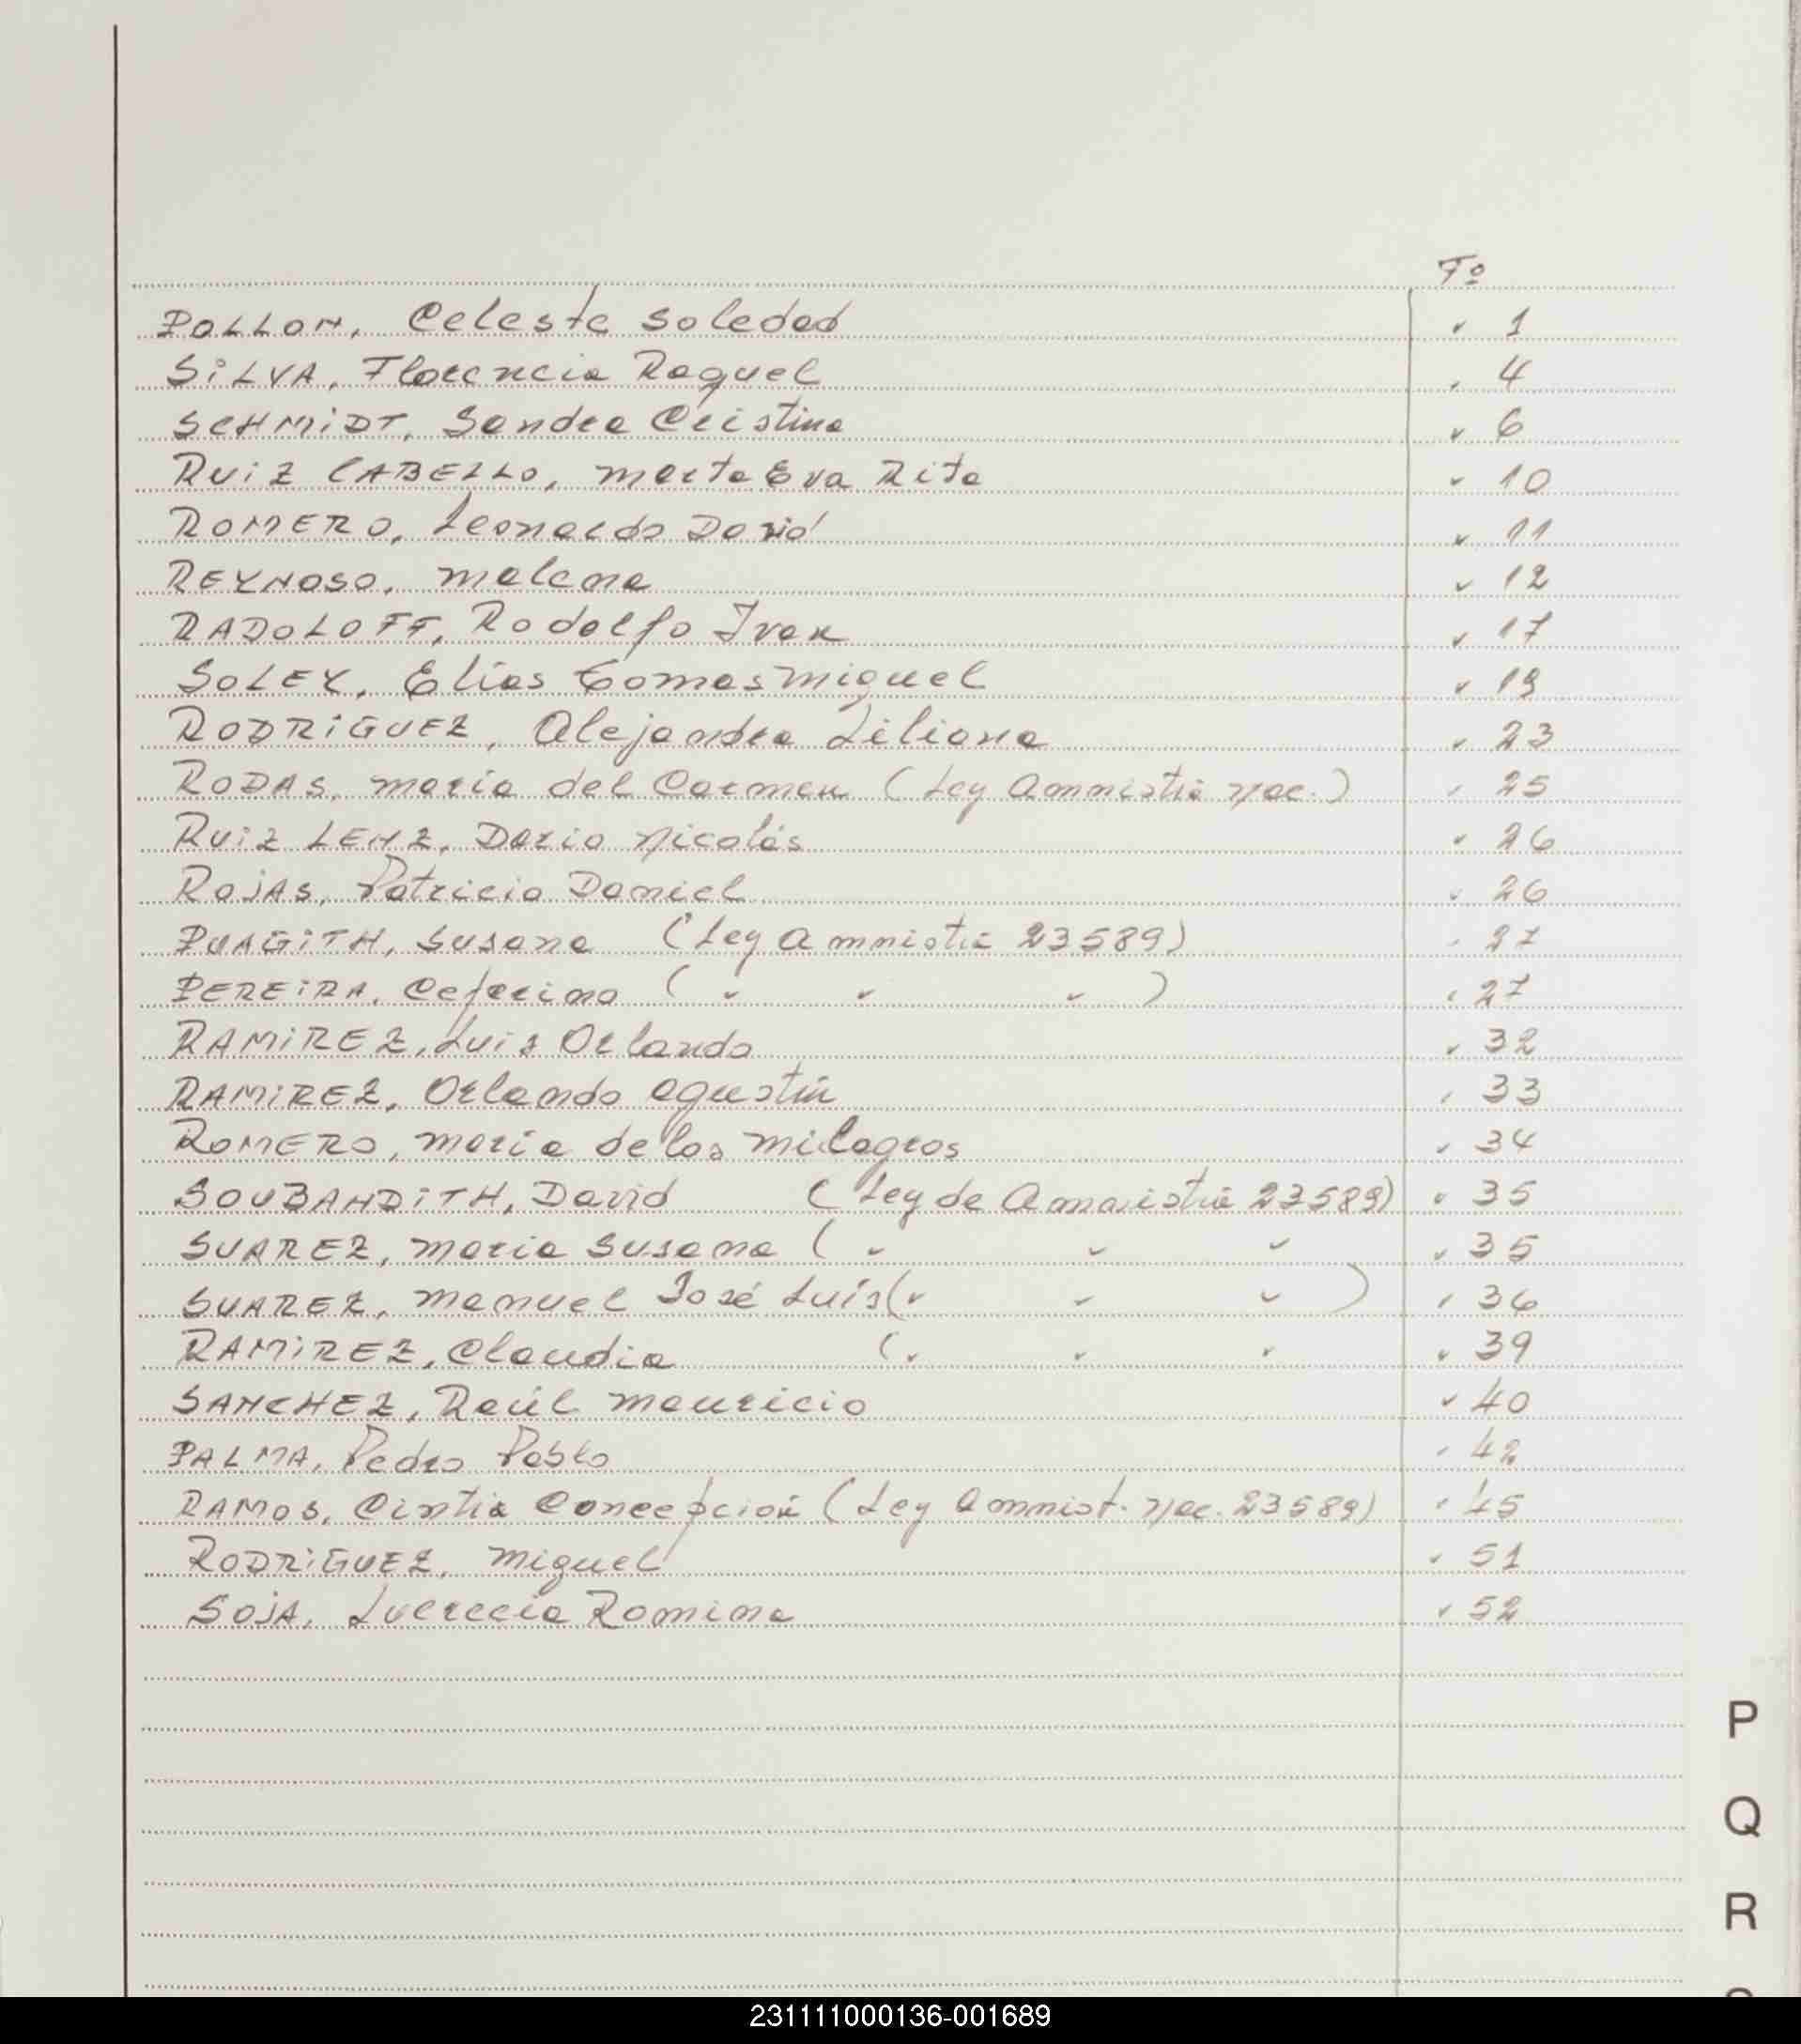 Fº
POLLON, Celeste Soledad " 1
SiLVA, Florencia Raquel " 4
SCHMiDT, Sandra Cristina " 6
RUiZ CABELLO, Marta Eva Rita " 10
ROMERO, Leonardo David " 11
REYNOSO, Malena " 12
RADOLOFF, Rodolfo Ivan " 17
SOLEY, Elías Tomas Miguel " 19
RODRiGUEZ, Alejandra Liliana " 23
RODAS, María del Carmen (Ley Amnistía Nac.) " 25
RUiZ LENZ, Dario Nicolás " 26
ROJAS, Patricio Daniel " 26
PUAGiTH, Susana (Ley Amnistía 23589) " 27
PEREiRA, Ceferino ( " " " ) " 27
RAMiREZ, Luis Orlando " 32
RAMiREZ, Orlando Agustín " 33
ROMERO, María de los Milagros " 34
SOUBANDiTH, David (Ley de Amnistía 23589) " 35
SUAREZ, María Susana ( " " " " 35
SUAREZ, Manuel José Luís ( " " " ) " 36
RAMiREZ, Claudia ( " " " " 39
SANCHEZ, Raúl Mauricio " 40
PALMA, Pedro Pablo " 42
RAMOS, Cintia Concepción (Ley Amnist. Nac. 23589) " 45
RODRiGUEZ, Miguel " 51
SOJA, Lucrecia Romina " 52
P
Q
R
231111000136-001689